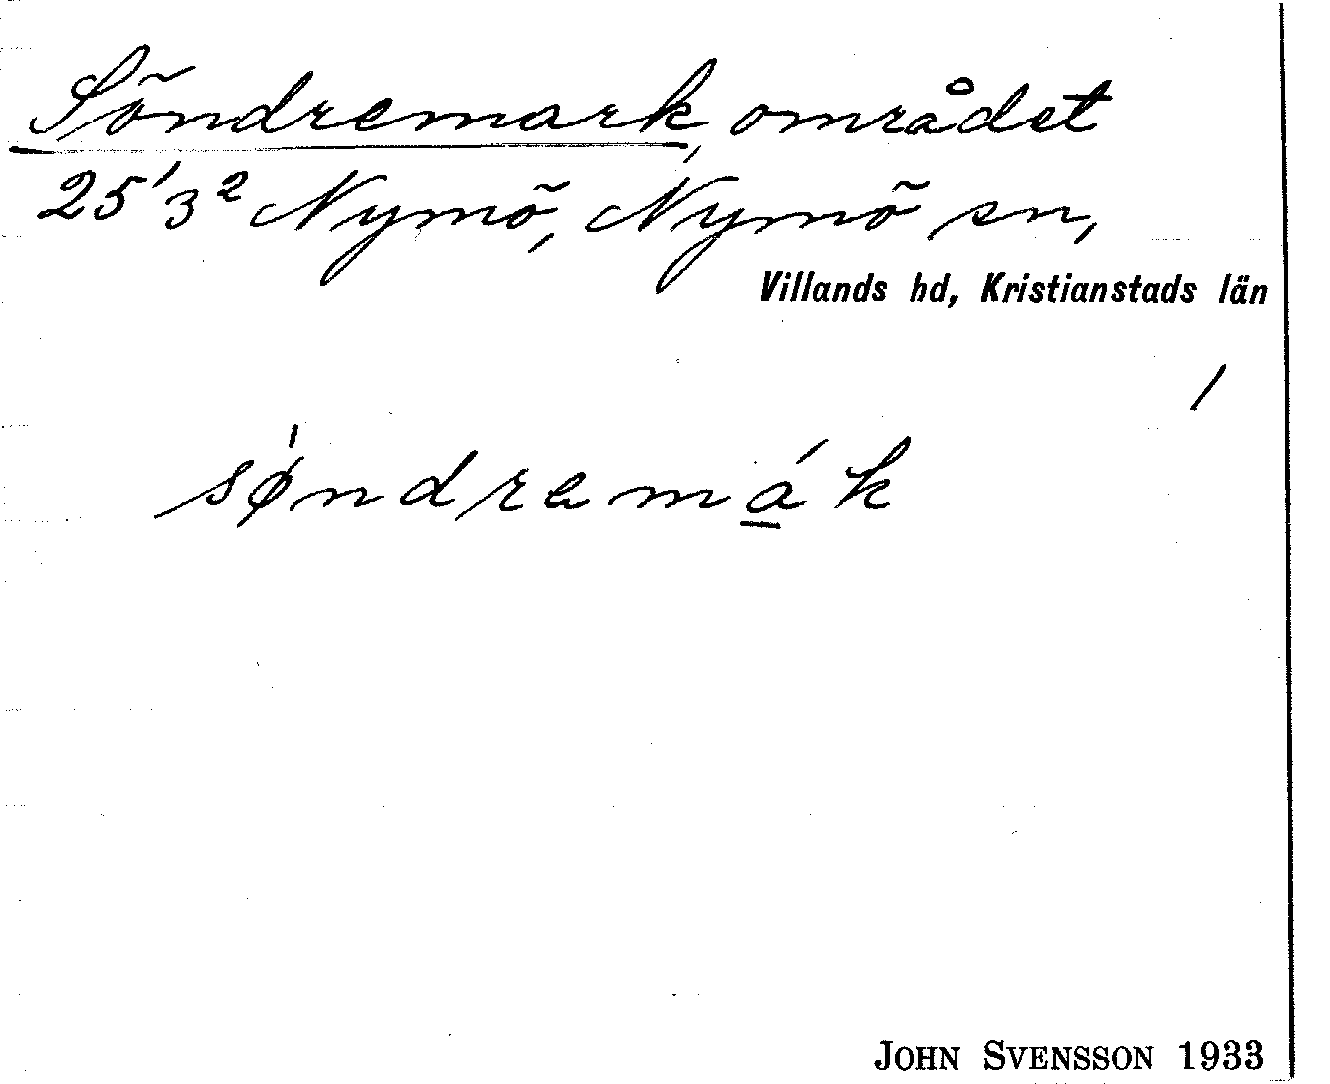 Söndremark, området
25¹3² Nymö, Nymö sn,
Villands hd, Kristianstads län
/
søndremák
JOHN SVENSSON 1933